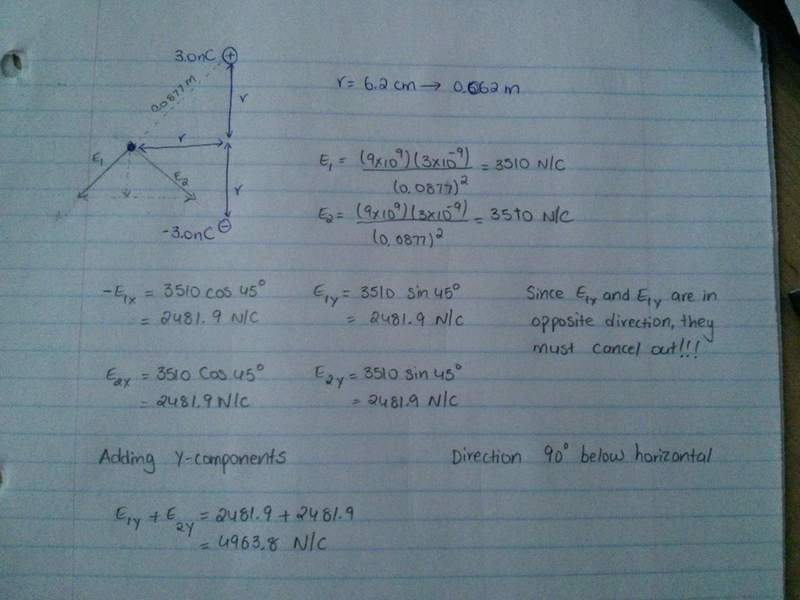 3.0nC +
0.0877m
r
r
r
E₁
E₂
-3.0nC -
r = 6.2 cm → 0.062 m
E₁ = (9×10⁹)(3×10⁻⁹) / (0.0877)² = 3510 N/C
E₂ = (9×10⁹)(3×10⁻⁹) / (0.0877)² = 3510 N/C
-E₁ₓ = 3510 cos 45°
= 2481.9 N/C
E₁y = 3510 sin 45°
= 2481.9 N/C
Since E₁ₓ and E₁y are in
opposite direction, they
must cancel out!!!
E₂ₓ = 3510 Cos 45°
= 2481.9 N/C
E₂y = 3510 sin 45°
= 2481.9 N/C
Adding Y-components
Direction 90° below horizontal
E₁y + E₂y = 2481.9 + 2481.9
= 4963.8 N/C